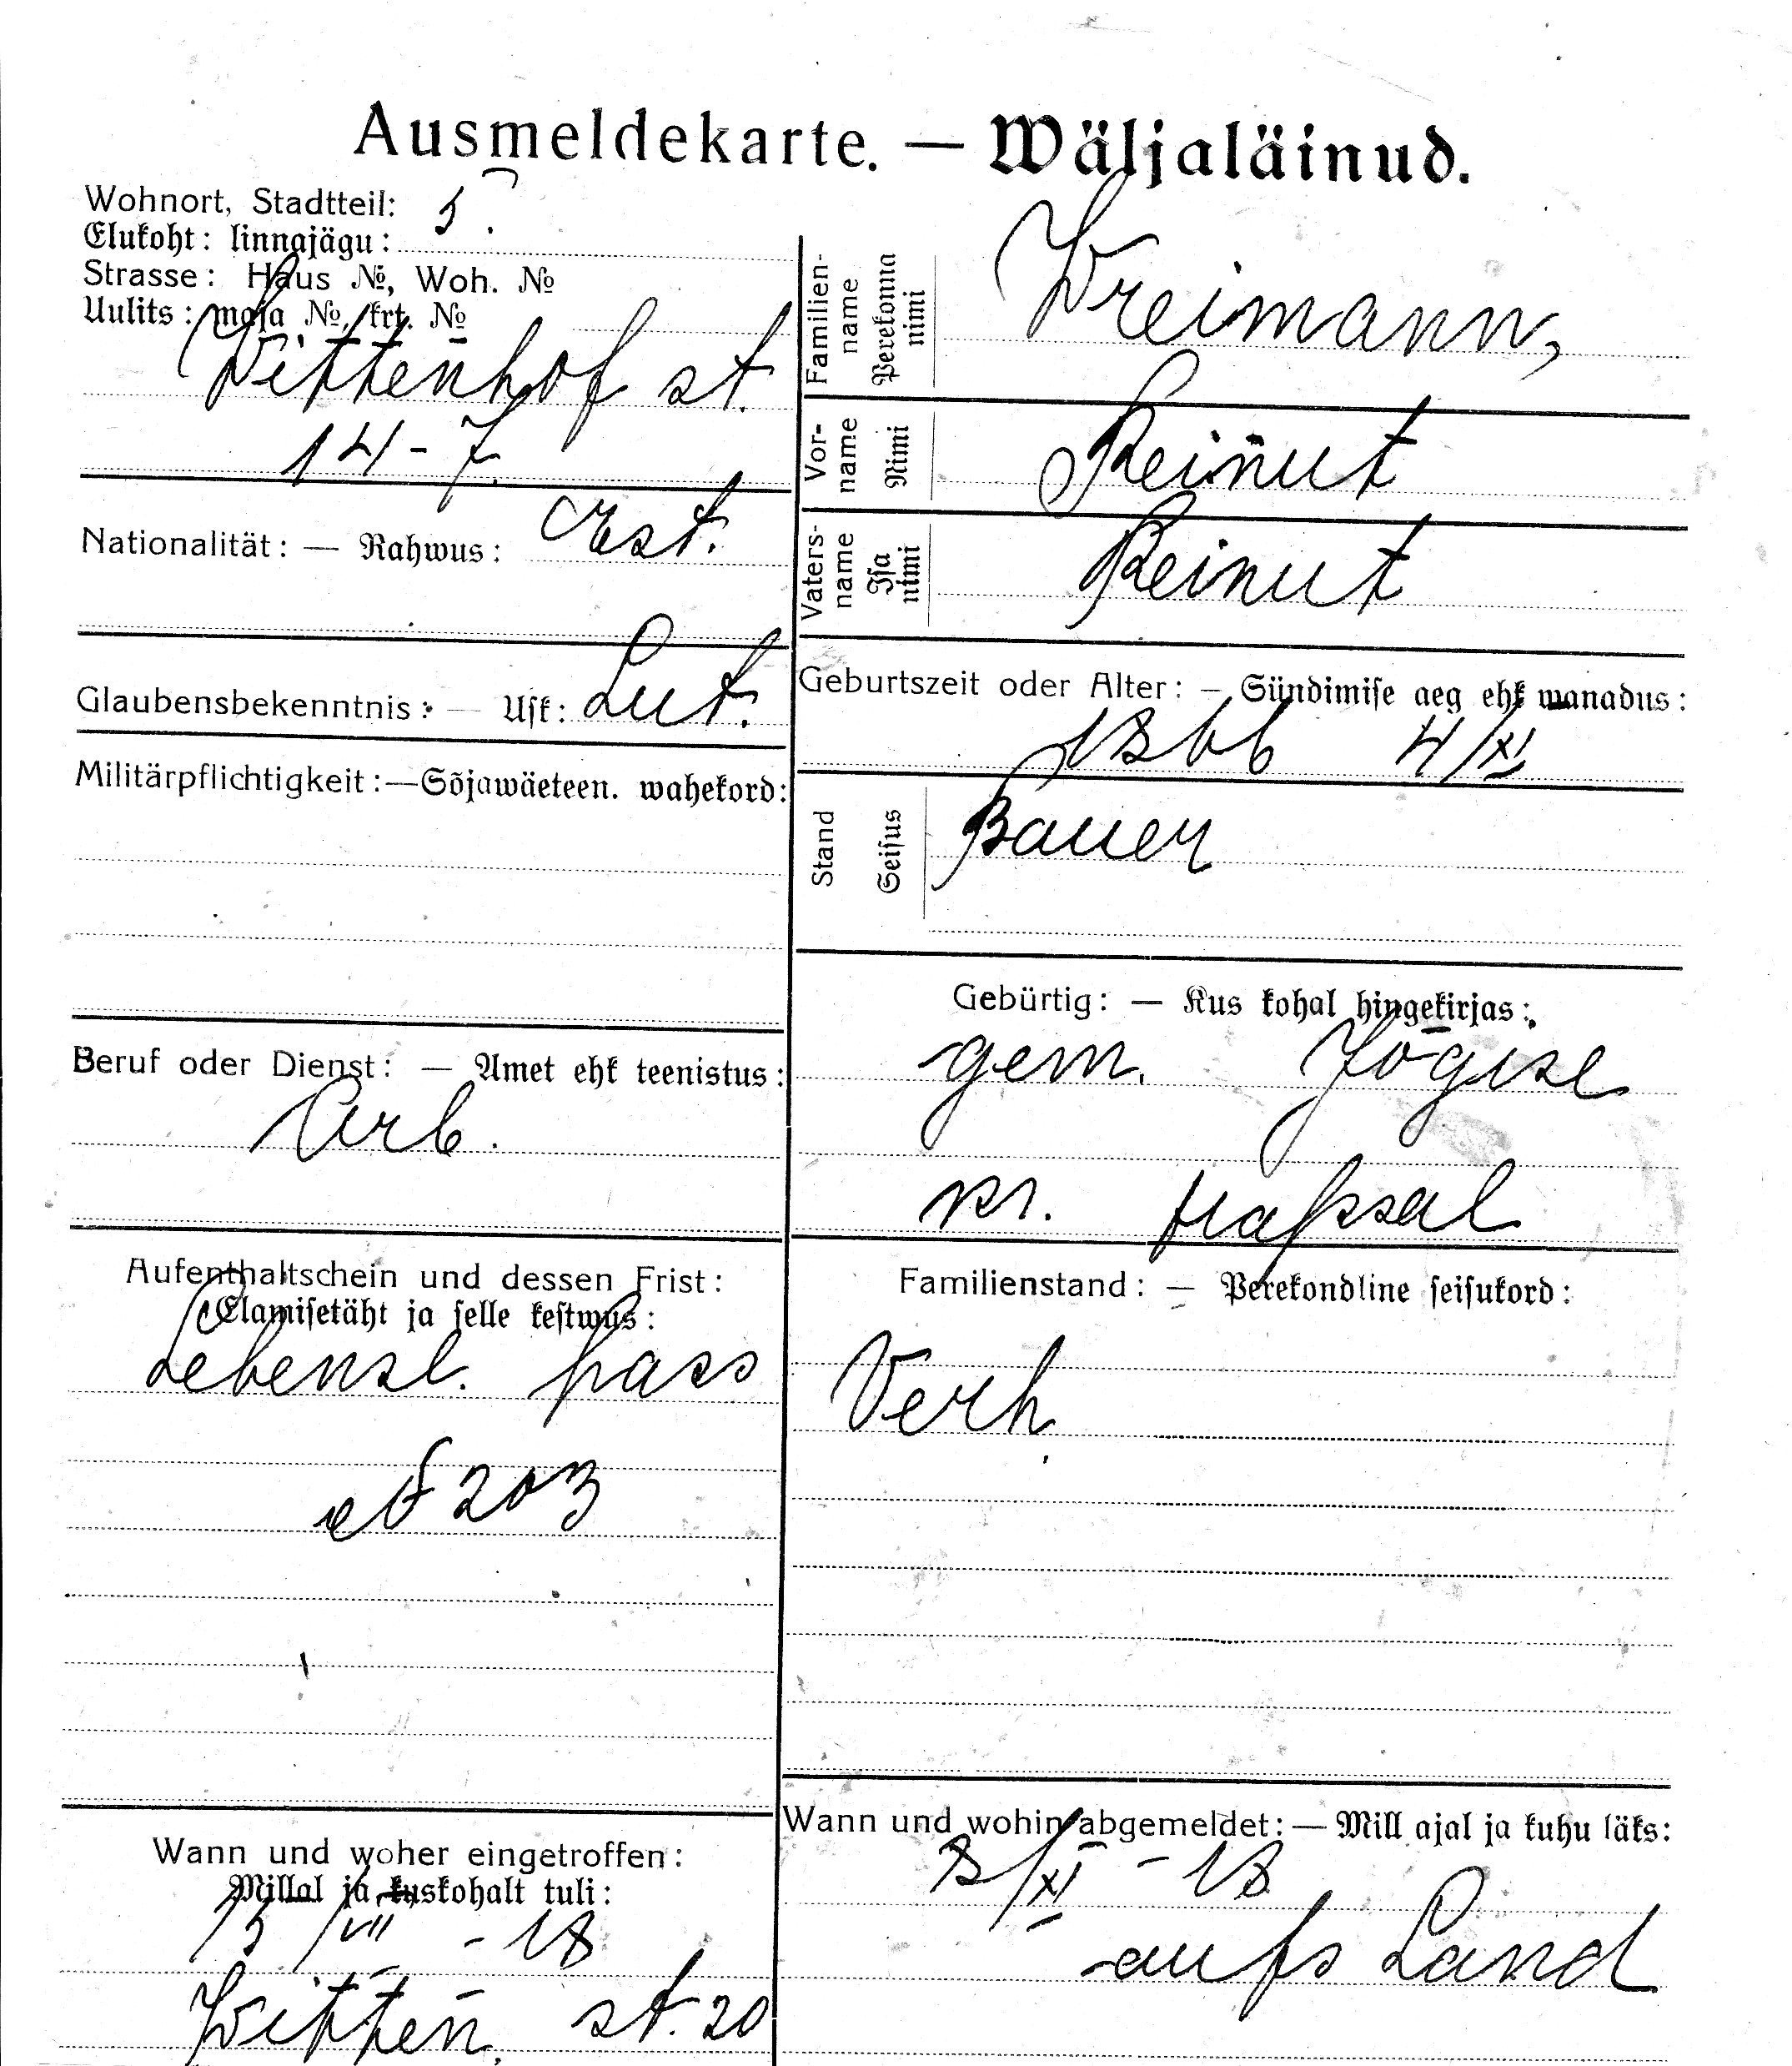 Ausmeldekarte. — Wäljaläinud.
Wohnort, Stadtteil: 5.
Elukoht: linnajägu:
Strasse: Haus №, Woh. №
Uulits: maja №, krt. №
Wittenhof st.
14-7.
Nationalität: — Rahwus: Est.
Glaubensbekenntnis: — Usk: Lut.
Militärpflichtigkeit: — Sõjawäeteen. wahekord:
Beruf oder Dienst: — Amet ehk teenistus:
Arb.
Aufenthaltschein und dessen Frist:
Elamisetäht ja selle kestwus:
Lebensl. pass
№ 203
Wann und woher eingetroffen:
Millal ja kuskohalt tuli:
/VII - 18
Witten. st. 20
Familien-name Perekonna nimi
Weimann,
Vor-name Nimi
Reinut
Vaters-name Isa nimi
Reinut
Geburtszeit oder Alter: — Sündimise aeg ehk wanadus:
1866 4/XI
Stand Seisus
Bauer
Gebürtig: — Kus kohal hingekirjas:
gem. Jögise
kr. Hapsal
Familienstand: — Perekondline seisukord:
Verh.
Wann und wohin abgemeldet: — Mill ajal ja kuhu läks:
8/XI - 18
aufs Land